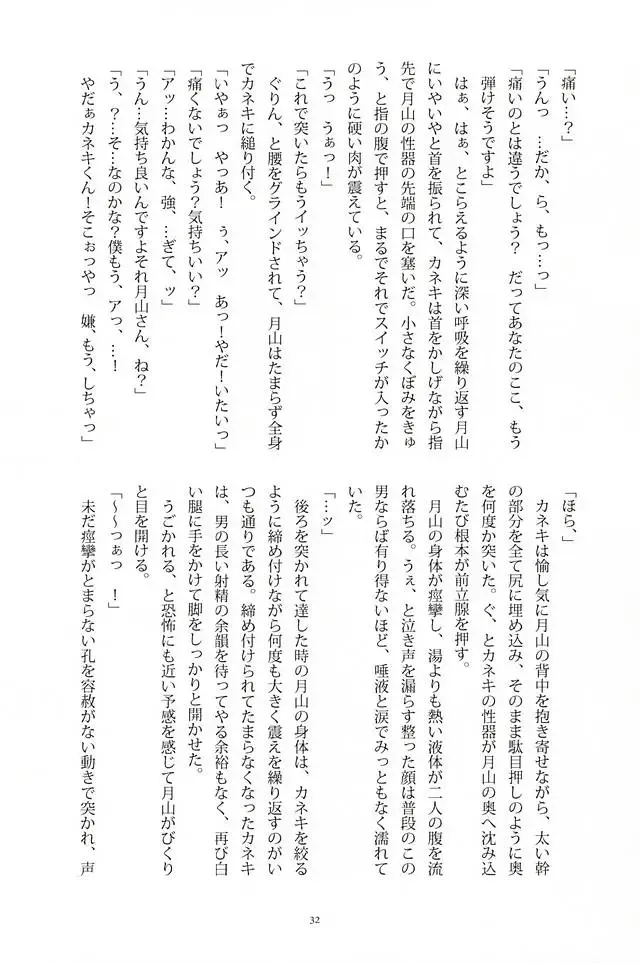 「痛い…？」
「うんっ　…だか、ら、もっ…っ」
「痛いのとは違うでしょう？　だってあなたのここ、もう
弾けそうですよ」
はぁ、はぁ、とこらえるように深い呼吸を繰り返す月山
にいやいやと首を振られて、カネキは首をかしげながら指
先で月山の性器の先端の口を塞いだ。小さなくぼみをきゅ
う、と指の腹で押すと、まるでそれでスイッチが入ったか
のように硬い肉が震えている。
「うっ　うぁっ！」
「これで突いたらもうイッちゃう？」
ぐりん、と腰をグラインドされて、月山はたまらず全身
でカネキに縋り付く。
「いやぁっ　やっあ！　ぅ、アッ　あっ！やだ！いたいっ」
「痛くないでしょう？気持ちいい？」
「アッ…わかんな、強、…ぎて、ッ」
「うん…気持ち良いんですよそれ月山さん、ね？」
「う、？…そ…なのかな？僕もう、アっ、…！
やだぁカネキくん！そこぉっやっ　嫌、もう、しちゃっ」
「ほら、」
カネキは愉し気に月山の背中を抱き寄せながら、太い幹
の部分を全て尻に埋め込み、そのまま駄目押しのように奥
を何度か突いた。ぐ、とカネキの性器が月山の奥へ沈み込
むたび根本が前立腺を押す。
月山の身体が痙攣し、湯よりも熱い液体が二人の腹を流
れ落ちる。うぇ、と泣き声を漏らす整った顔は普段のこの
男ならば有り得ないほど、唾液と涙でみっともなく濡れて
いた。
「…ッ」
後ろを突かれて達した時の月山の身体は、カネキを絞る
ように締め付けながら何度も大きく震えを繰り返すのがい
つも通りである。締め付けられてたまらなくなったカネキ
は、男の長い射精の余韻を待ってやる余裕もなく、再び白
い腿に手をかけて脚をしっかりと開かせた。
うごかれる、と恐怖にも近い予感を感じて月山がびくり
と目を開ける。
「～～っぁっ　！」
未だ痙攣がとまらない孔を容赦がない動きで突かれ、声
32